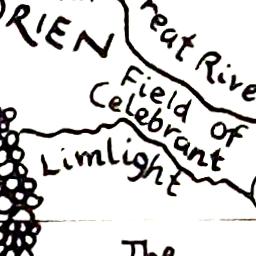 RIEN
reat Rive
Field of
Celebrant
Limlight
The